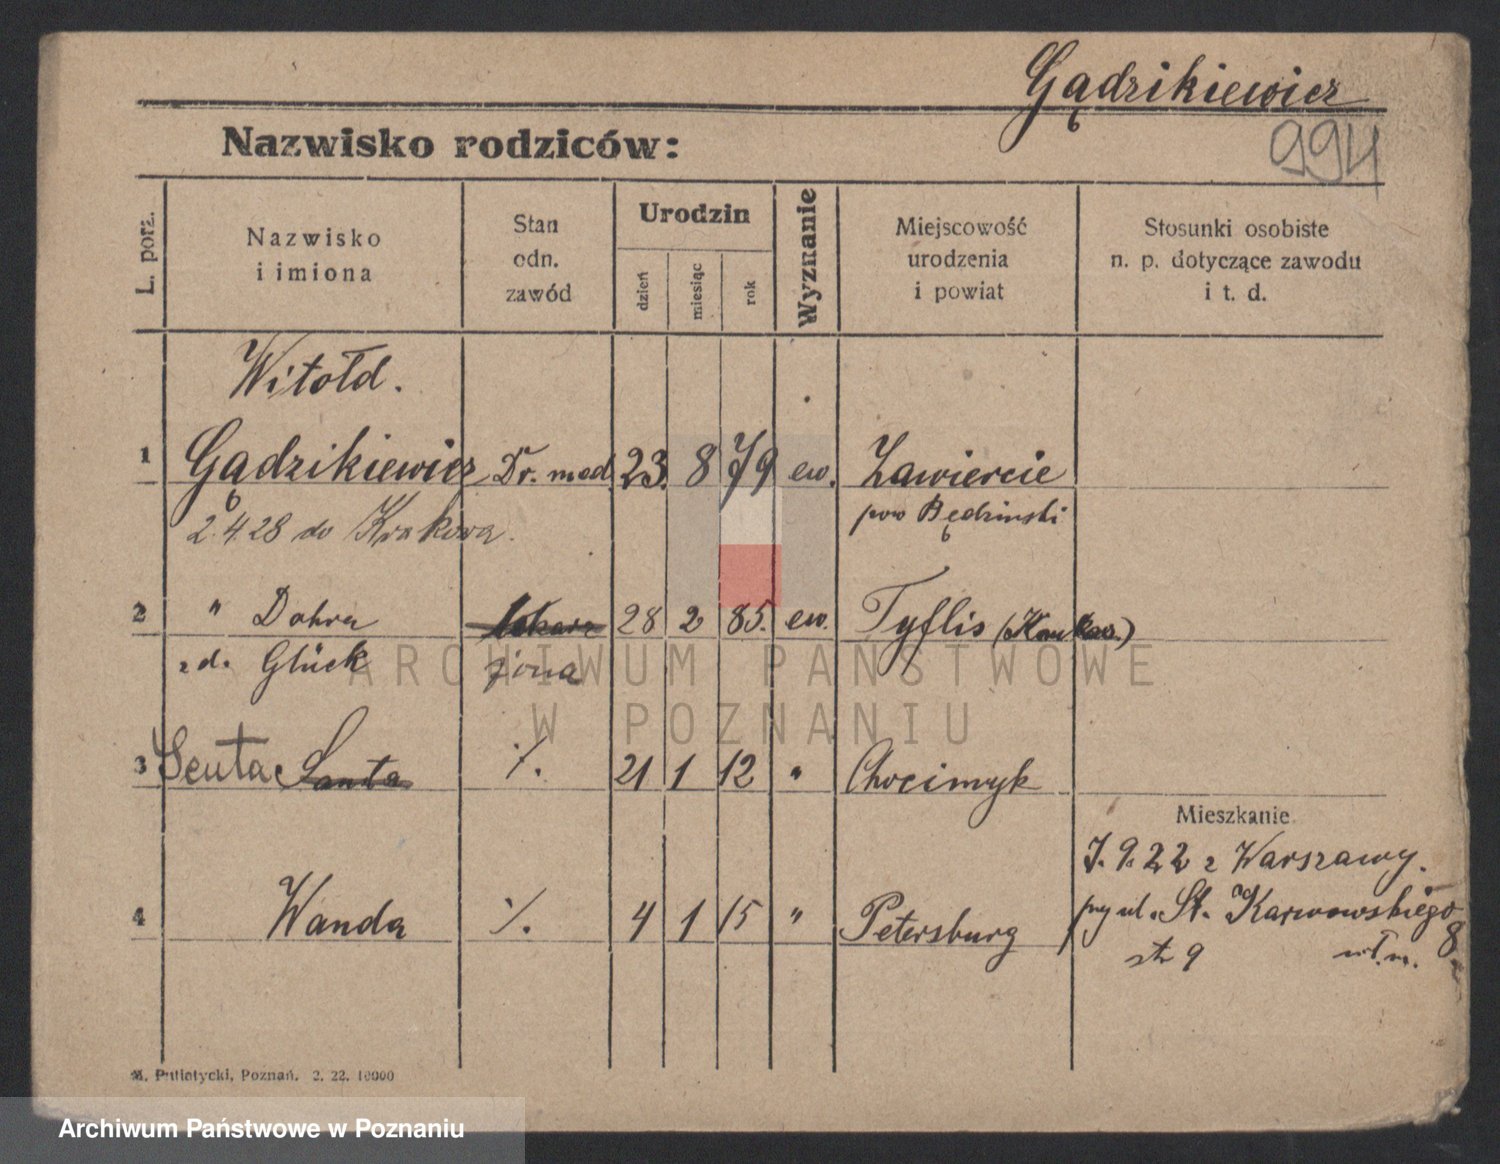 Gądzikiewicz
994
Nazwisko rodziców:
L. porz.
Nazwisko
i imiona
Stan
odn.
zawód
Urodzin
dzień
miesiąc
rok
Wyznanie
Miejscowość
urodzenia
i powiat
Stosunki osobiste
n. p. dotyczące zawodu
i t. d.
Witołd.
1 Gądzikiewicz Dr. med. 23. 8 79 ew. Zawiercie
2.4.28 do Krakowa. pow Będzinski
2 " Dohra lekarz 28 2 85. ew. Tyflis (Kaukaz.)
zd. Glück żona
ARCHIWUM PAŃSTWOWE
W POZNANIU
3 Senta Santa ./. 21 1 12 " Chocimyk
Mieszkanie
7.9.22 z Warszawy.
4 Wanda ./. 4 1 15 " Petersburg przy ul. St. Karwowskiego 8
st 9 wł.m.
M. Putiatycki, Poznań. 2. 22. 10000
Archiwum Państwowe w Poznaniu